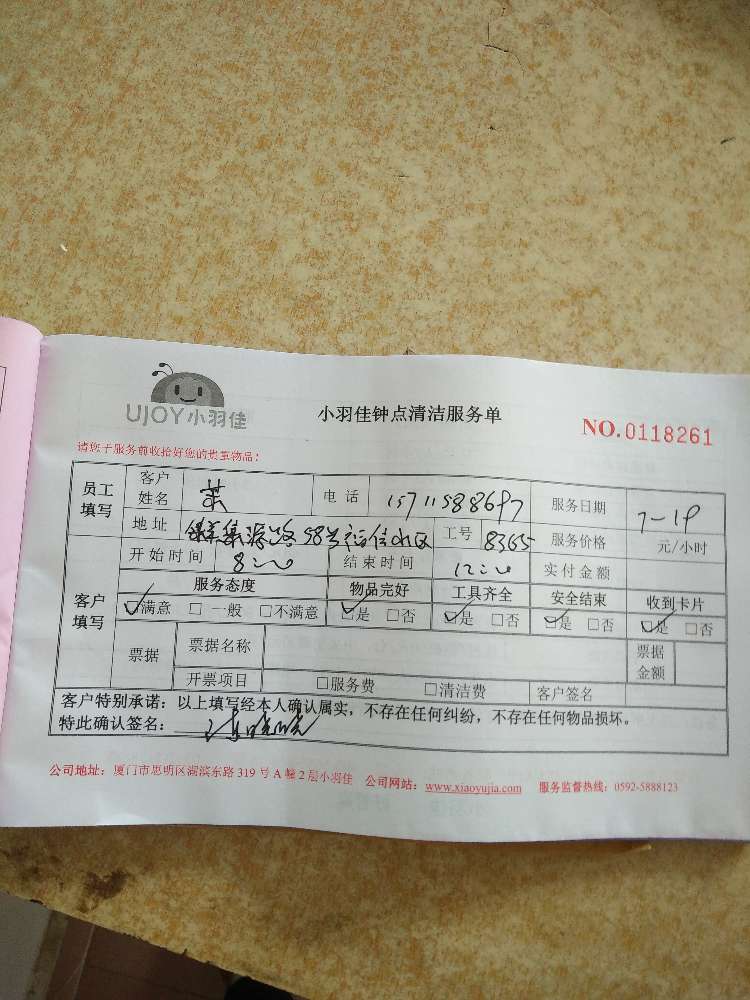 UJOY小羽佳
小羽佳钟点清洁服务单
NO.0118261
请您于服务前收拾好您的贵重物品:
员工填写 客户姓名 电话 15711588697 服务日期 7-19
地址 路 58号 工号 8365 服务价格 元/小时
客户填写 开始时间 8:00 结束时间 12:00 实付金额
服务态度 物品完好 工具齐全 安全结束 收到卡片
☑满意 □一般 □不满意 ☑是 □否 ☑是 □否 ☑是 □否 ☑是 □否
票据 票据名称 票据金额
开票项目 □服务费 □清洁费 客户签名
客户特别承诺:以上填写经本人确认属实,不存在任何纠纷,不存在任何物品损坏。
特此确认签名:
公司地址:厦门市思明区湖滨东路 319 号 A 幢 2 层小羽佳 公司网站:www.xiaoyujia.com 服务监督热线:0592-5888123